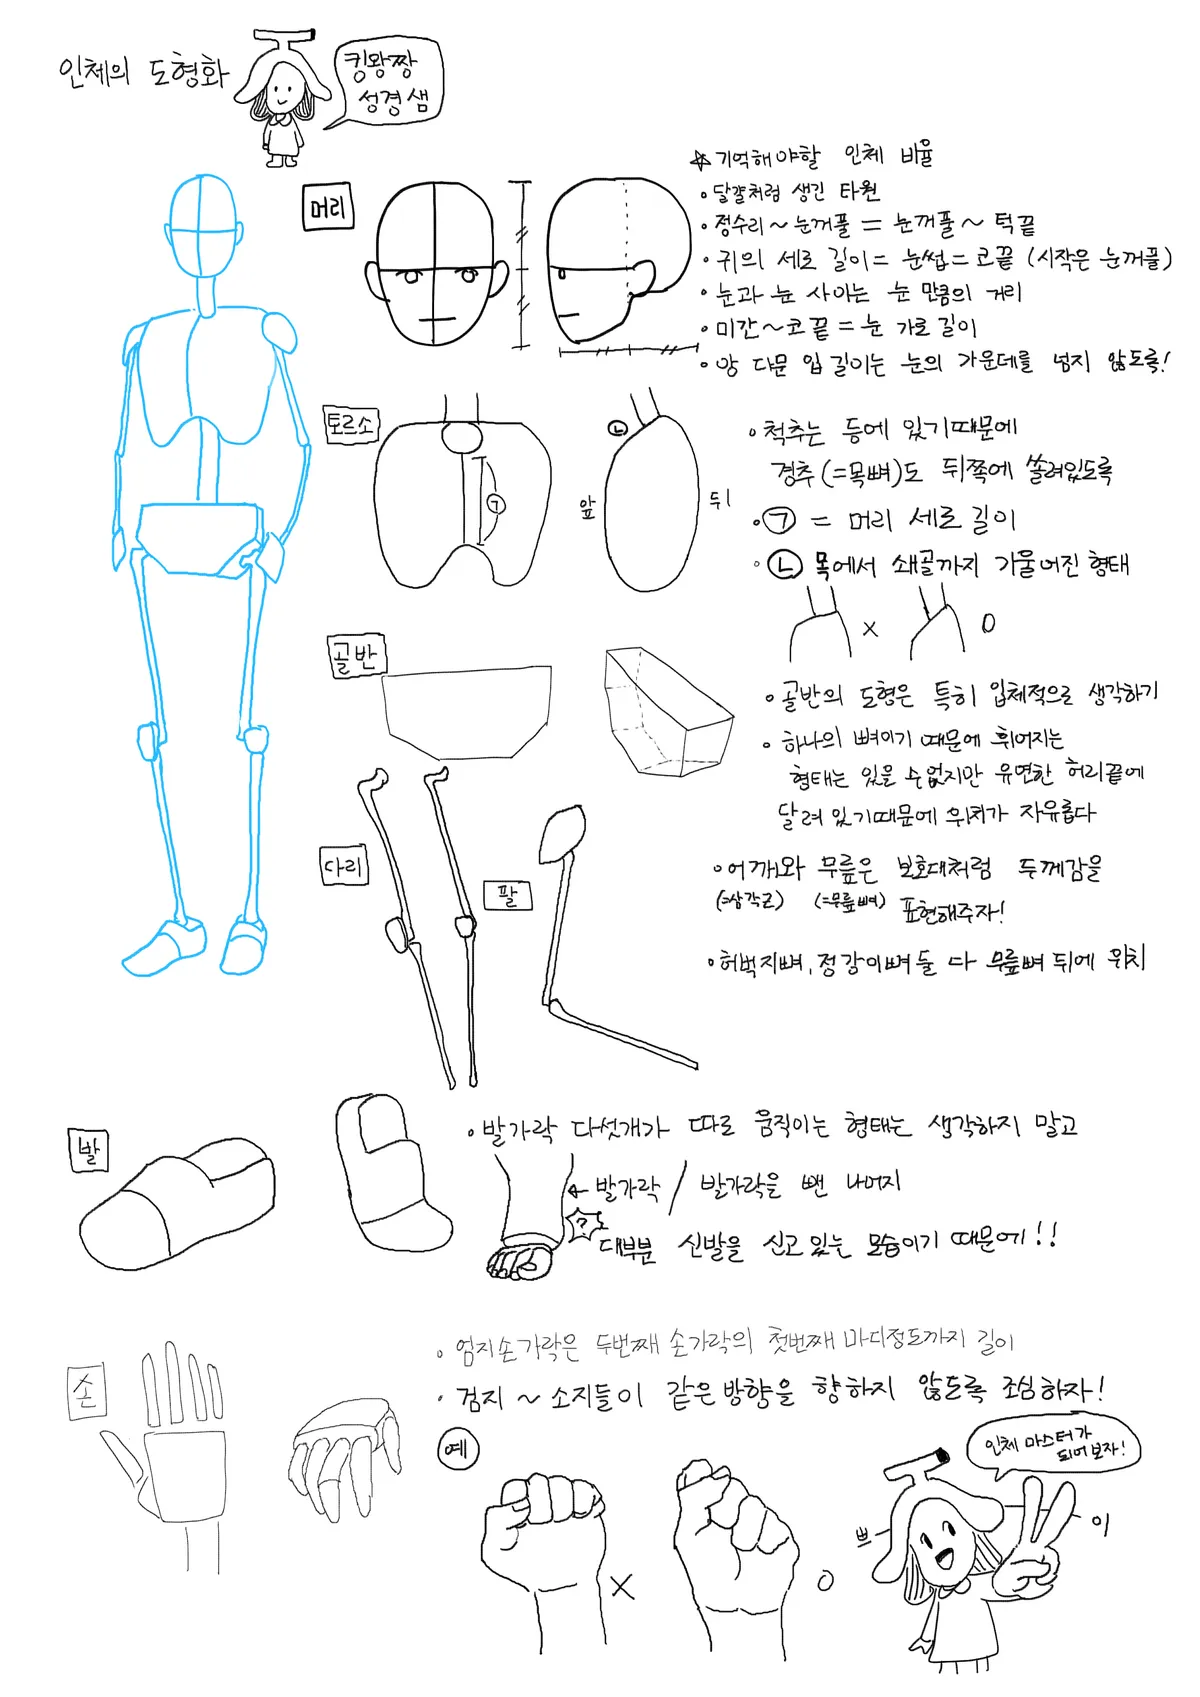 인체의 도형화
킹왕짱
성경샘
머리
☆기억해야할 인체 비율
• 달걀처럼 생긴 타원
• 정수리~눈꺼풀 = 눈꺼풀~턱끝
• 귀의 세로 길이 = 눈썹 = 코끝 (시작은 눈꺼풀)
• 눈과 눈 사이는 눈 만큼의 거리
• 미간~코끝 = 눈 가로 길이
• 앙 다문 입 길이는 눈의 가운데를 넘지 않도록!
토르소
㉠
㉡
앞
뒤
• 척추는 등에 있기때문에
경추(=목뼈)도 뒤쪽에 쏠려있도록
• ㉠ = 머리 세로 길이
• ㉡ 목에서 쇄골까지 기울어진 형태
X
O
골반
• 골반의 도형은 특히 입체적으로 생각하기
• 하나의 뼈이기 때문에 휘어지는
형태는 있을 수 없지만 유연한 허리끝에
달려 있기때문에 위치가 자유롭다
다리
팔
• 어깨와 무릎은 보호대처럼 두께감을
(=삼각근) (=무릎뼈) 표현해주자!
• 허벅지뼈, 정강이뼈 둘 다 무릎뼈 뒤에 위치
발
• 발가락 다섯개가 따로 움직이는 형태는 생각하지 말고
← 발가락 / 발가락을 뺀 나머지
?
대부분 신발을 신고 있는 모습이기 때문에!!
손
• 엄지손가락은 두번째 손가락의 첫번째 마디정도까지 길이
• 검지 ~ 소지들이 같은 방향을 향하지 않도록 조심하자!
예
X
O
인체 마스터가
되어보자!
쁘
이